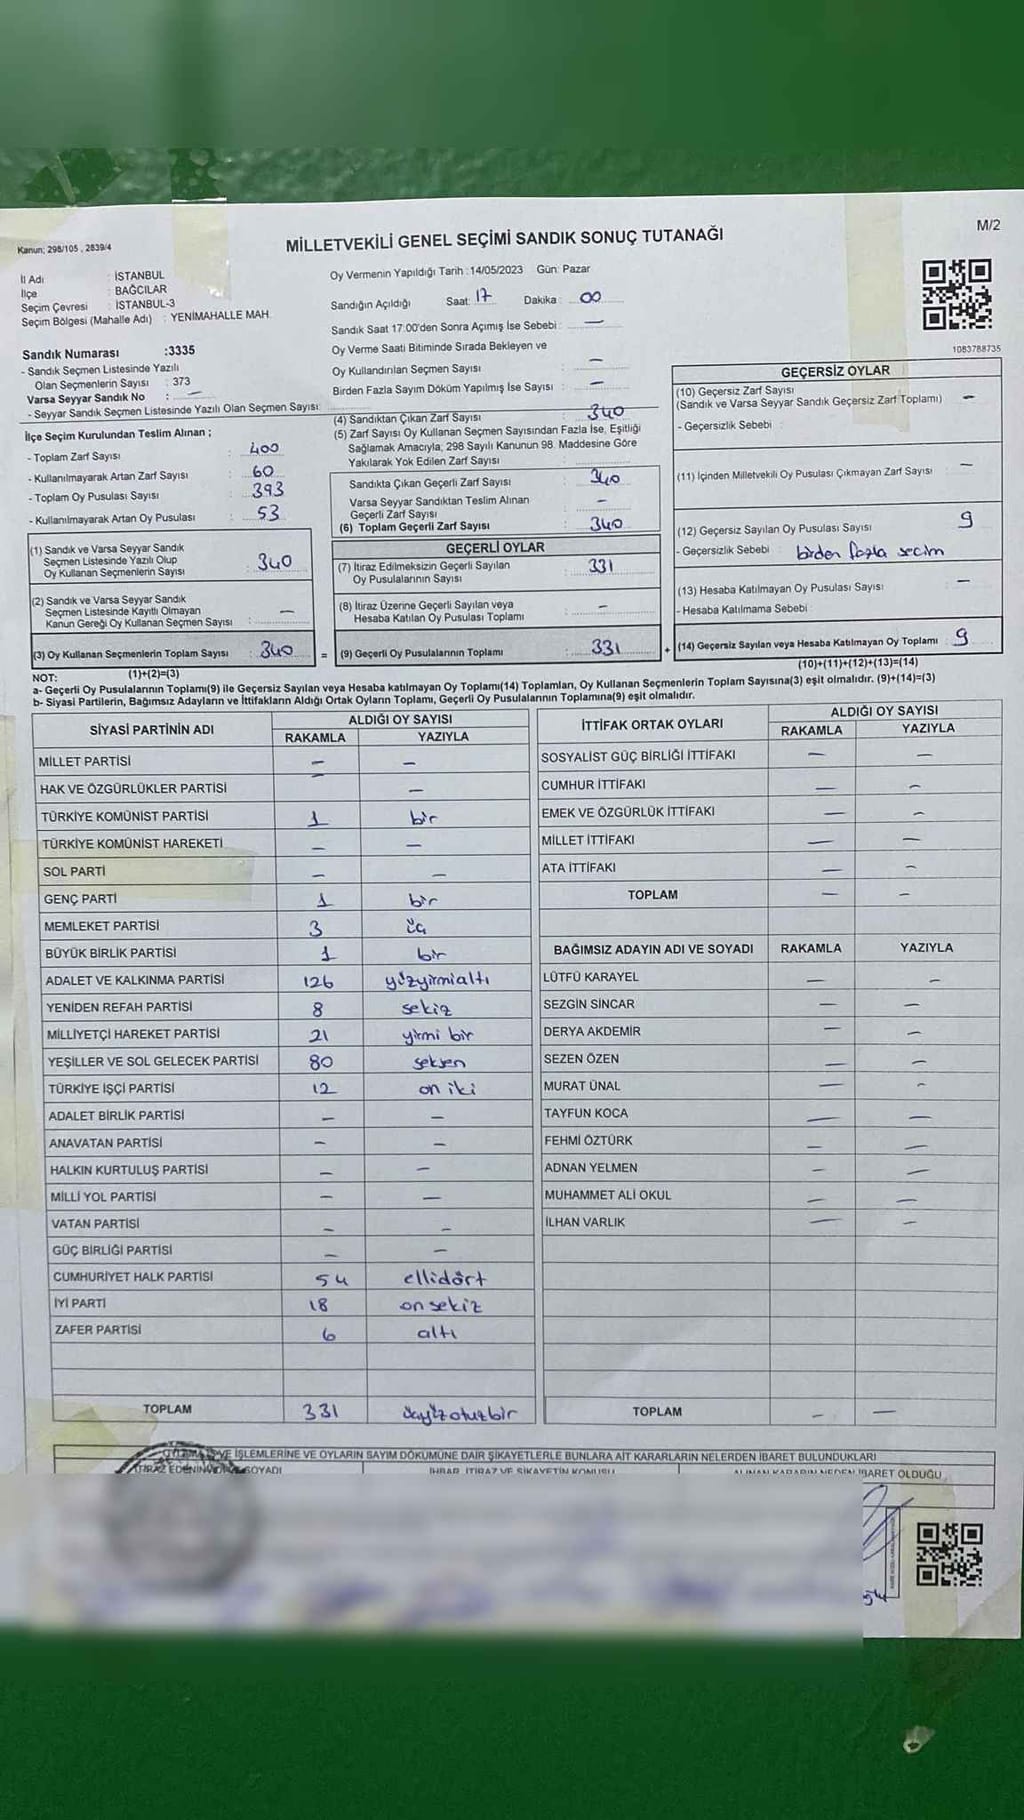 Kanun; 298/105 , 2839/4
MİLLETVEKİLİ GENEL SEÇİMİ SANDIK SONUÇ TUTANAĞI
M/2
İl Adı : İSTANBUL
İlçe : BAĞCILAR
Seçim Çevresi : İSTANBUL-3
Seçim Bölgesi (Mahalle Adı) : YENİMAHALLE MAH.
Oy Vermenin Yapıldığı Tarih :14/05/2023 Gün: Pazar
Sandığın Açıldığı Saat: 17 Dakika : 00
Sandık Saat 17:00'den Sonra Açımış İse Sebebi : —
Oy Verme Saati Bitiminde Sırada Bekleyen ve
Oy Kullandırılan Seçmen Sayısı : —
Birden Fazla Sayım Döküm Yapılmış İse Sayısı : —
1083788735
Sandık Numarası :3335
- Sandık Seçmen Listesinde Yazılı
Olan Seçmenlerin Sayısı : 373
Varsa Seyyar Sandık No : —
- Seyyar Sandık Seçmen Listesinde Yazılı Olan Seçmen Sayısı:
İlçe Seçim Kurulundan Teslim Alınan ;
- Toplam Zarf Sayısı : 400
- Kullanılmayarak Artan Zarf Sayısı : 60
- Toplam Oy Pusulası Sayısı : 393
- Kullanılmayarak Artan Oy Pusulası : 53
(1) Sandık ve Varsa Seyyar Sandık
Seçmen Listesinde Yazılı Olup
Oy Kullanan Seçmenlerin Sayısı : 340
(2) Sandık ve Varsa Seyyar Sandık
Seçmen Listesinde Kayıtlı Olmayan
Kanun Gereği Oy Kullanan Seçmen Sayısı : —
(3) Oy Kullanan Seçmenlerin Toplam Sayısı : 340
(1)+(2)=(3)
(4) Sandıktan Çıkan Zarf Sayısı : 340
(5) Zarf Sayısı Oy Kullanan Seçmen Sayısından Fazla İse, Eşitliği
Sağlamak Amacıyla; 298 Sayılı Kanunun 98. Maddesine Göre
Yakılarak Yok Edilen Zarf Sayısı :
Sandıkta Çıkan Geçerli Zarf Sayısı : 340
Varsa Seyyar Sandıktan Teslim Alınan
Geçerli Zarf Sayısı : —
(6) Toplam Geçerli Zarf Sayısı : 340
GEÇERLİ OYLAR
(7) İtiraz Edilmeksizin Geçerli Sayılan
Oy Pusulalarının Sayısı : 331
(8) İtiraz Üzerine Geçerli Sayılan veya
Hesaba Katılan Oy Pusulası Toplamı : —
= (9) Geçerli Oy Pusulalarının Toplamı : 331 +
GEÇERSİZ OYLAR
(10) Geçersiz Zarf Sayısı
(Sandık ve Varsa Seyyar Sandık Geçersiz Zarf Toplamı) : —
- Geçersizlik Sebebi :
(11) İçinden Milletvekili Oy Pusulası Çıkmayan Zarf Sayısı : —
(12) Geçersiz Sayılan Oy Pusulası Sayısı : 9
- Geçersizlik Sebebi : birden fazla secim
(13) Hesaba Katılmayan Oy Pusulası Sayısı : —
- Hesaba Katılmama Sebebi :
(14) Geçersiz Sayılan veya Hesaba Katılmayan Oy Toplamı : 9
(10)+(11)+(12)+(13)=(14)
NOT:
a- Geçerli Oy Pusulalarının Toplamı(9) ile Geçersiz Sayılan veya Hesaba katılmayan Oy Toplamı(14) Toplamları, Oy Kullanan Seçmenlerin Toplam Sayısına(3) eşit olmalıdır. (9)+(14)=(3)
b- Siyasi Partilerin, Bağımsız Adayların ve İttifakların Aldığı Ortak Oyların Toplamı, Geçerli Oy Pusulalarının Toplamına(9) eşit olmalıdır.
SİYASİ PARTİNİN ADI ALDIĞI OY SAYISI
RAKAMLA YAZIYLA
MİLLET PARTİSİ — —
HAK VE ÖZGÜRLÜKLER PARTİSİ — —
TÜRKİYE KOMÜNİST PARTİSİ 1 bir
TÜRKİYE KOMÜNİST HAREKETİ — —
SOL PARTİ — —
GENÇ PARTİ 1 bir
MEMLEKET PARTİSİ 3 üç
BÜYÜK BİRLİK PARTİSİ 1 bir
ADALET VE KALKINMA PARTİSİ 126 yüzyirmialtı
YENİDEN REFAH PARTİSİ 8 sekiz
MİLLİYETÇİ HAREKET PARTİSİ 21 yirmi bir
YEŞİLLER VE SOL GELECEK PARTİSİ 80 seksen
TÜRKİYE İŞÇİ PARTİSİ 12 on iki
ADALET BİRLİK PARTİSİ — —
ANAVATAN PARTİSİ — —
HALKIN KURTULUŞ PARTİSİ — —
MİLLİ YOL PARTİSİ — —
VATAN PARTİSİ — —
GÜÇ BİRLİĞİ PARTİSİ — —
CUMHURİYET HALK PARTİSİ 54 ellidört
İYİ PARTİ 18 onsekiz
ZAFER PARTİSİ 6 altı
TOPLAM 331 üçyüzotuzbir
İTTİFAK ORTAK OYLARI ALDIĞI OY SAYISI
RAKAMLA YAZIYLA
SOSYALİST GÜÇ BİRLİĞİ İTTİFAKI — —
CUMHUR İTTİFAKI — —
EMEK VE ÖZGÜRLÜK İTTİFAKI — —
MİLLET İTTİFAKI — —
ATA İTTİFAKI — —
TOPLAM — —
BAĞIMSIZ ADAYIN ADI VE SOYADI RAKAMLA YAZIYLA
LÜTFÜ KARAYEL — —
SEZGİN SİNCAR — —
DERYA AKDEMİR — —
SEZEN ÖZEN — —
MURAT ÜNAL — —
TAYFUN KOCA — —
FEHMİ ÖZTÜRK — —
ADNAN YELMEN — —
MUHAMMET ALİ OKUL — —
İLHAN VARLIK — —
TOPLAM — —
İŞLEMLERİNE VE OYLARIN SAYIM DÖKÜMÜNE DAİR ŞİKAYETLERLE BUNLARA AİT KARARLARIN NELERDEN İBARET BULUNDUKLARI
İTİRAZ EDENİN SOYADI İHBAR, İTİRAZ VE ŞİKAYETİN KONUSU ALINAN KARARIN NEDEN İBARET OLDUĞU